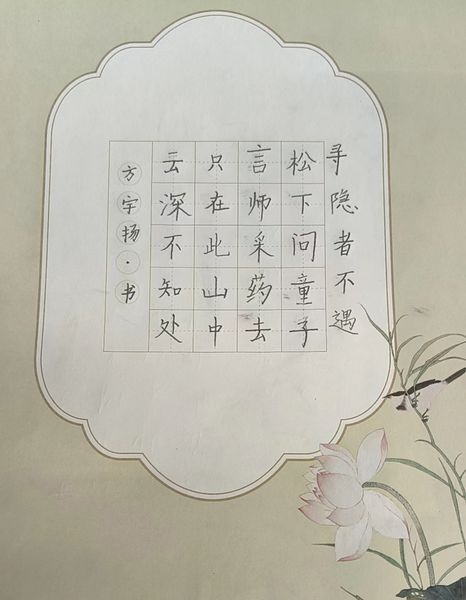 寻隐者不遇
松下问童子
言师采药去
只在此山中
云深不知处
方宇扬·书